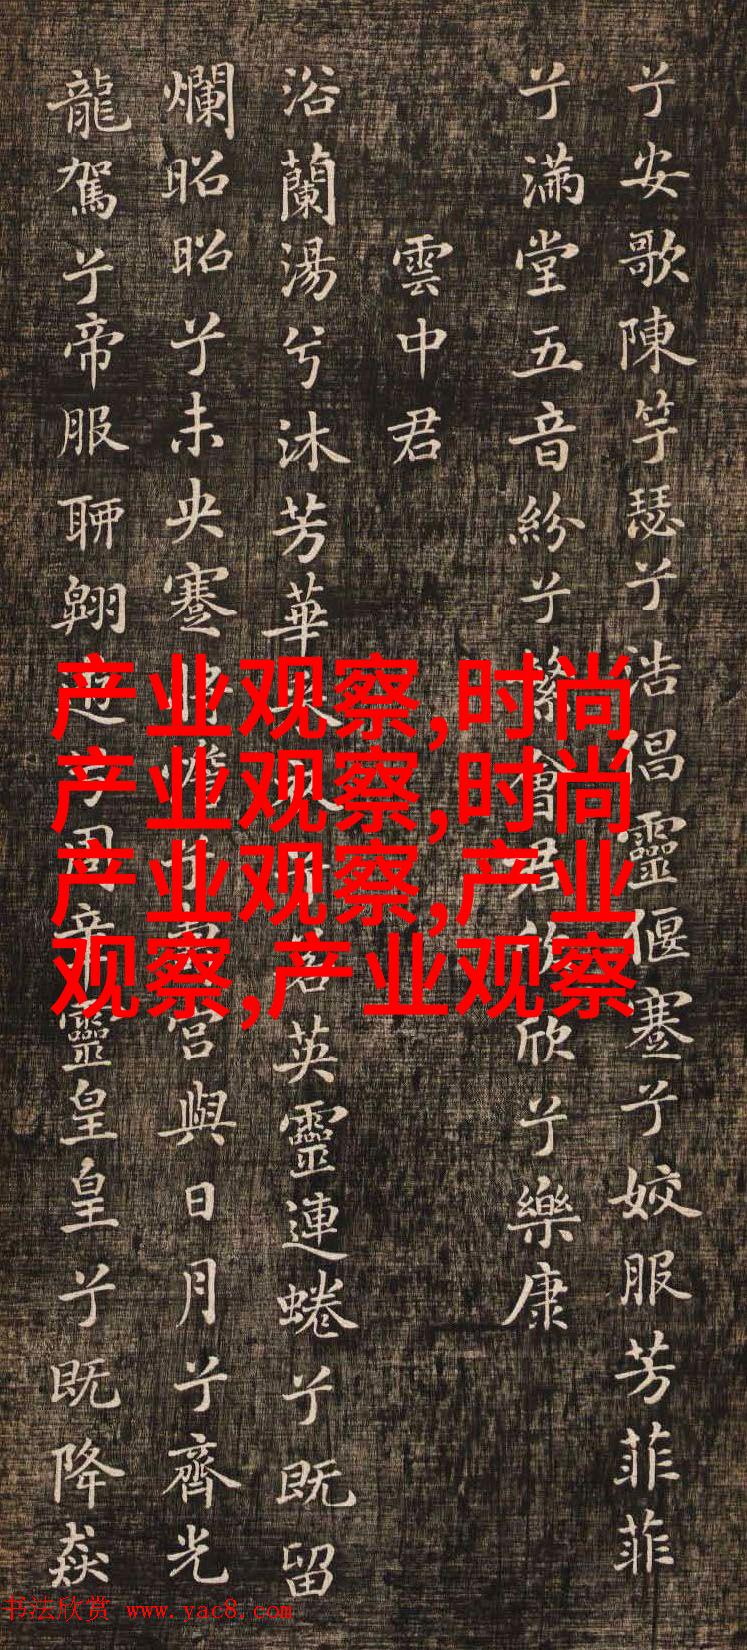 兮安歌陳竽瑟兮浩倡靈偃蹇兮姣服芳菲菲
兮滿堂五音紛兮繁會君欣兮樂康
雲中君
浴蘭湯兮沐芳華兮若英靈連蜷兮既留
爛昭昭兮未央蹇將憺兮宮與日月兮齊光
龍駕兮帝服聊翱遊兮周章靈皇皇兮既降猋
产业观察,时尚
产业观察,时尚
产业观察,产业
观察,产业观察
书法欣赏 www.yac8.com